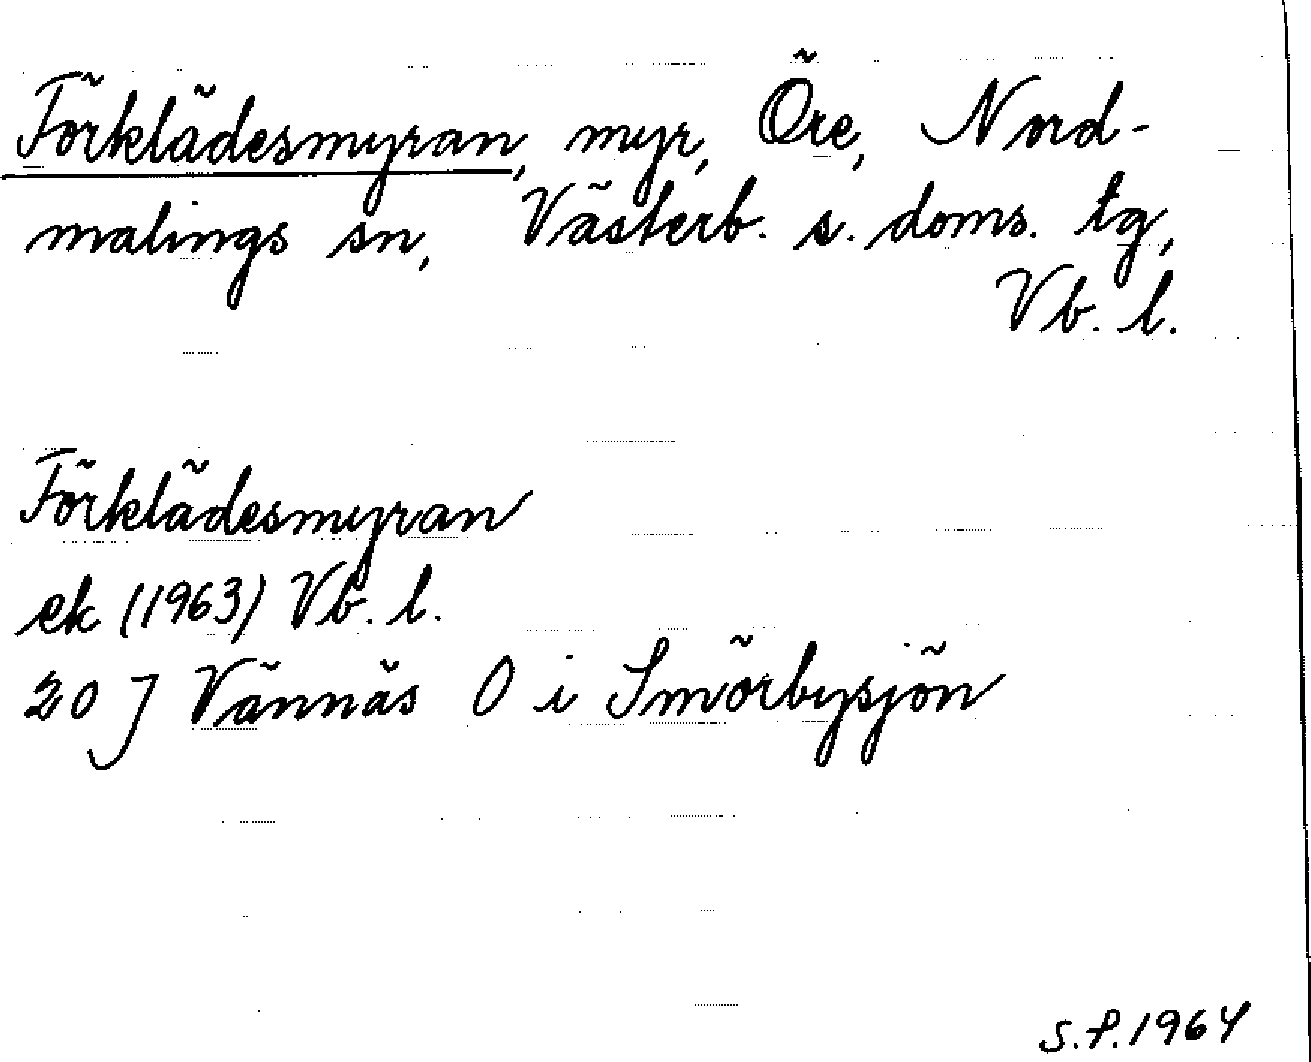 Förklädesmyran, myr, Öre, Nord-
malings sn, Västerb. s. doms. tg,
Vb. l.
Förklädesmyran
ek (1963) Vb. l.
20 J Vännäs O i Smörbysjön
S.P. 1964